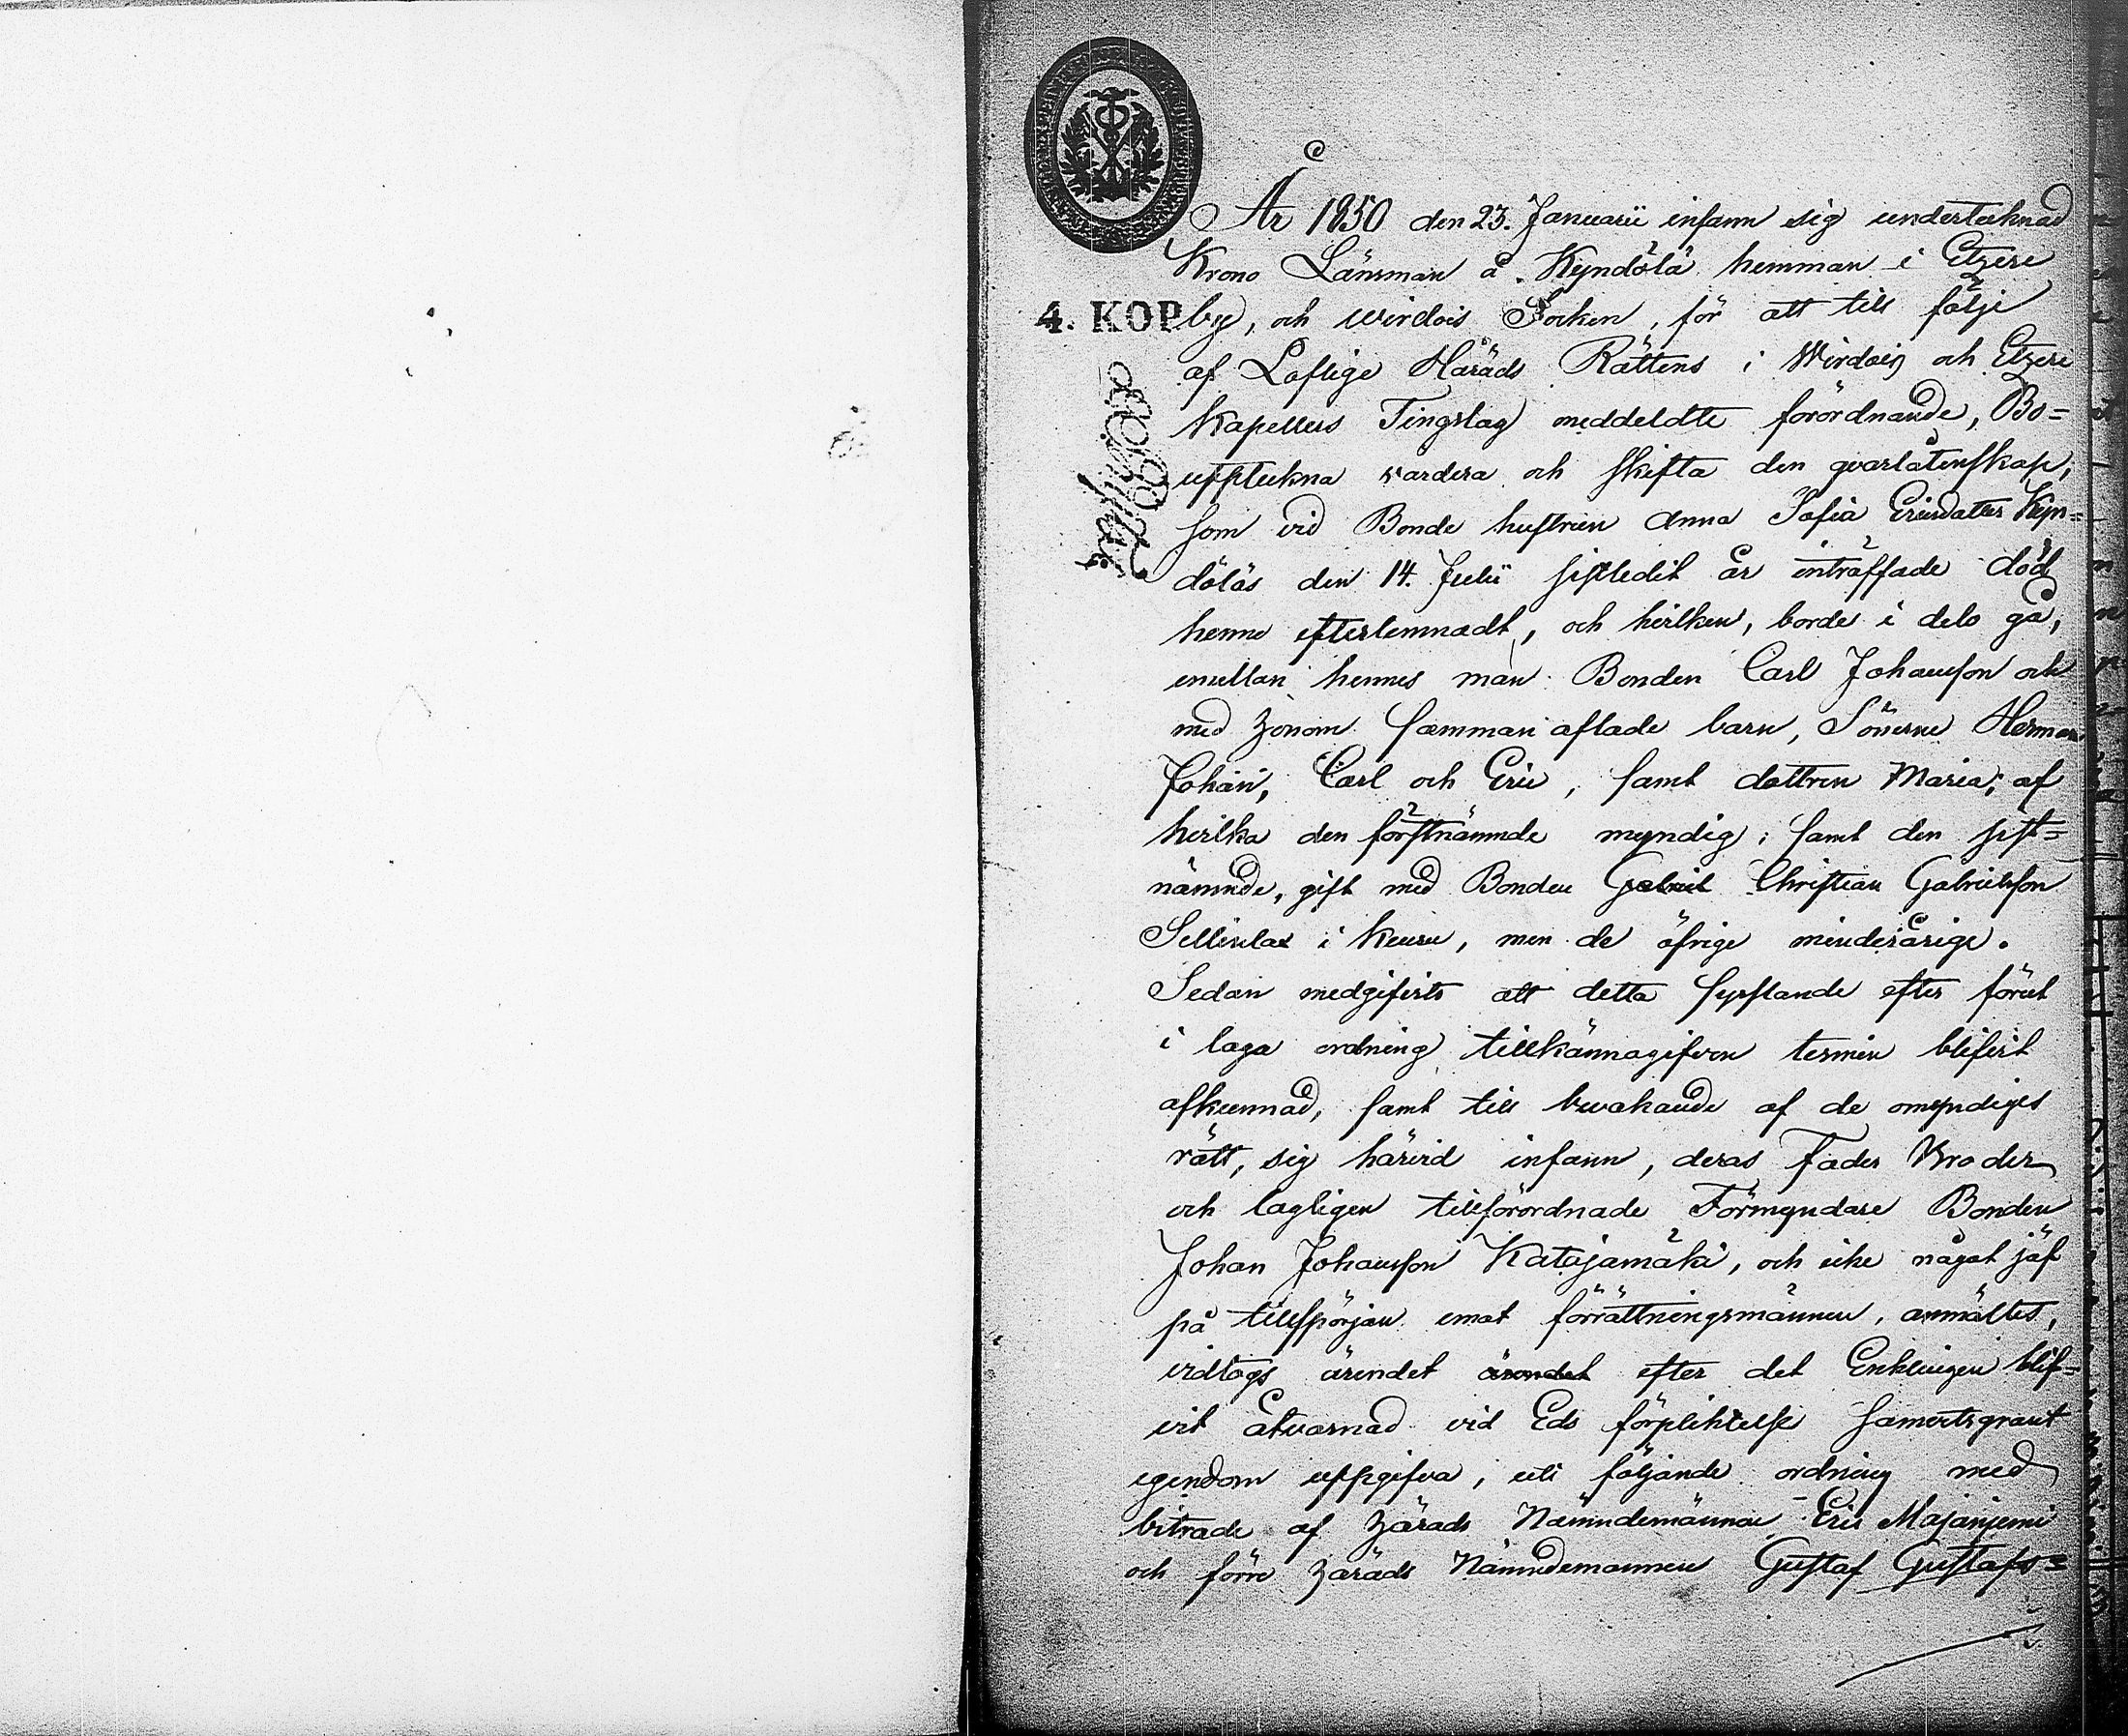 År 1850 den 23. Januarii infann sig undertecknad
Krono Länsman å Kyndölä hemman i Etzeri
4. KOP by, och Wirdois Socken, för att till följe
af Loflige Häräds Rättens i Wirdois och Etzeri
Kapellers Tingslag meddeldte förordnande, Bo=
uppteckna värdera och skifta den qvarlåtenskap,
som vid Bonde hustrun Anna Sofia Ericsdotter Kyn=
döläs den 14. Julii sistledit år inträffade död
henne efterlemnadt, och hvilken, borde i delo gå,
emellan hennes man Bonden Carl Johansson och
med honom samman aflade barn, Sönerne Herman
Johan, Carl och Eric, samt dottren Maria; af
hvilka den förstnämnde myndig, samt den sist=
nämnde, gift med Bonden Gabriel Christian Gabrielsson
i Keuru, men de öfrige minderårige.
Sedan medgifvits att detta sysslande efter förut
i laga ordning tillkännagifven termin blifvit
afkunnad, samt till bevakande af de omyndiges
rätt, sig härvid infann, deras Fader Broder
och lagligen tillförordnade Förmyndare Bonden
Johan Johansson Katajamäki, och icke något jäf
på tillspörjan emot förrättningsmännen, anmältes,
vidtogs ärendet ärendet efter det Enklingen blif=
vit åtvarnad vid Eds förplichtelse
egendom uppgifva, uti följande ordning med
biträde af Härads Nämndemännen Eric Majaniemi
och förre Häräds Nämndemannen Gustaf Gustafs=